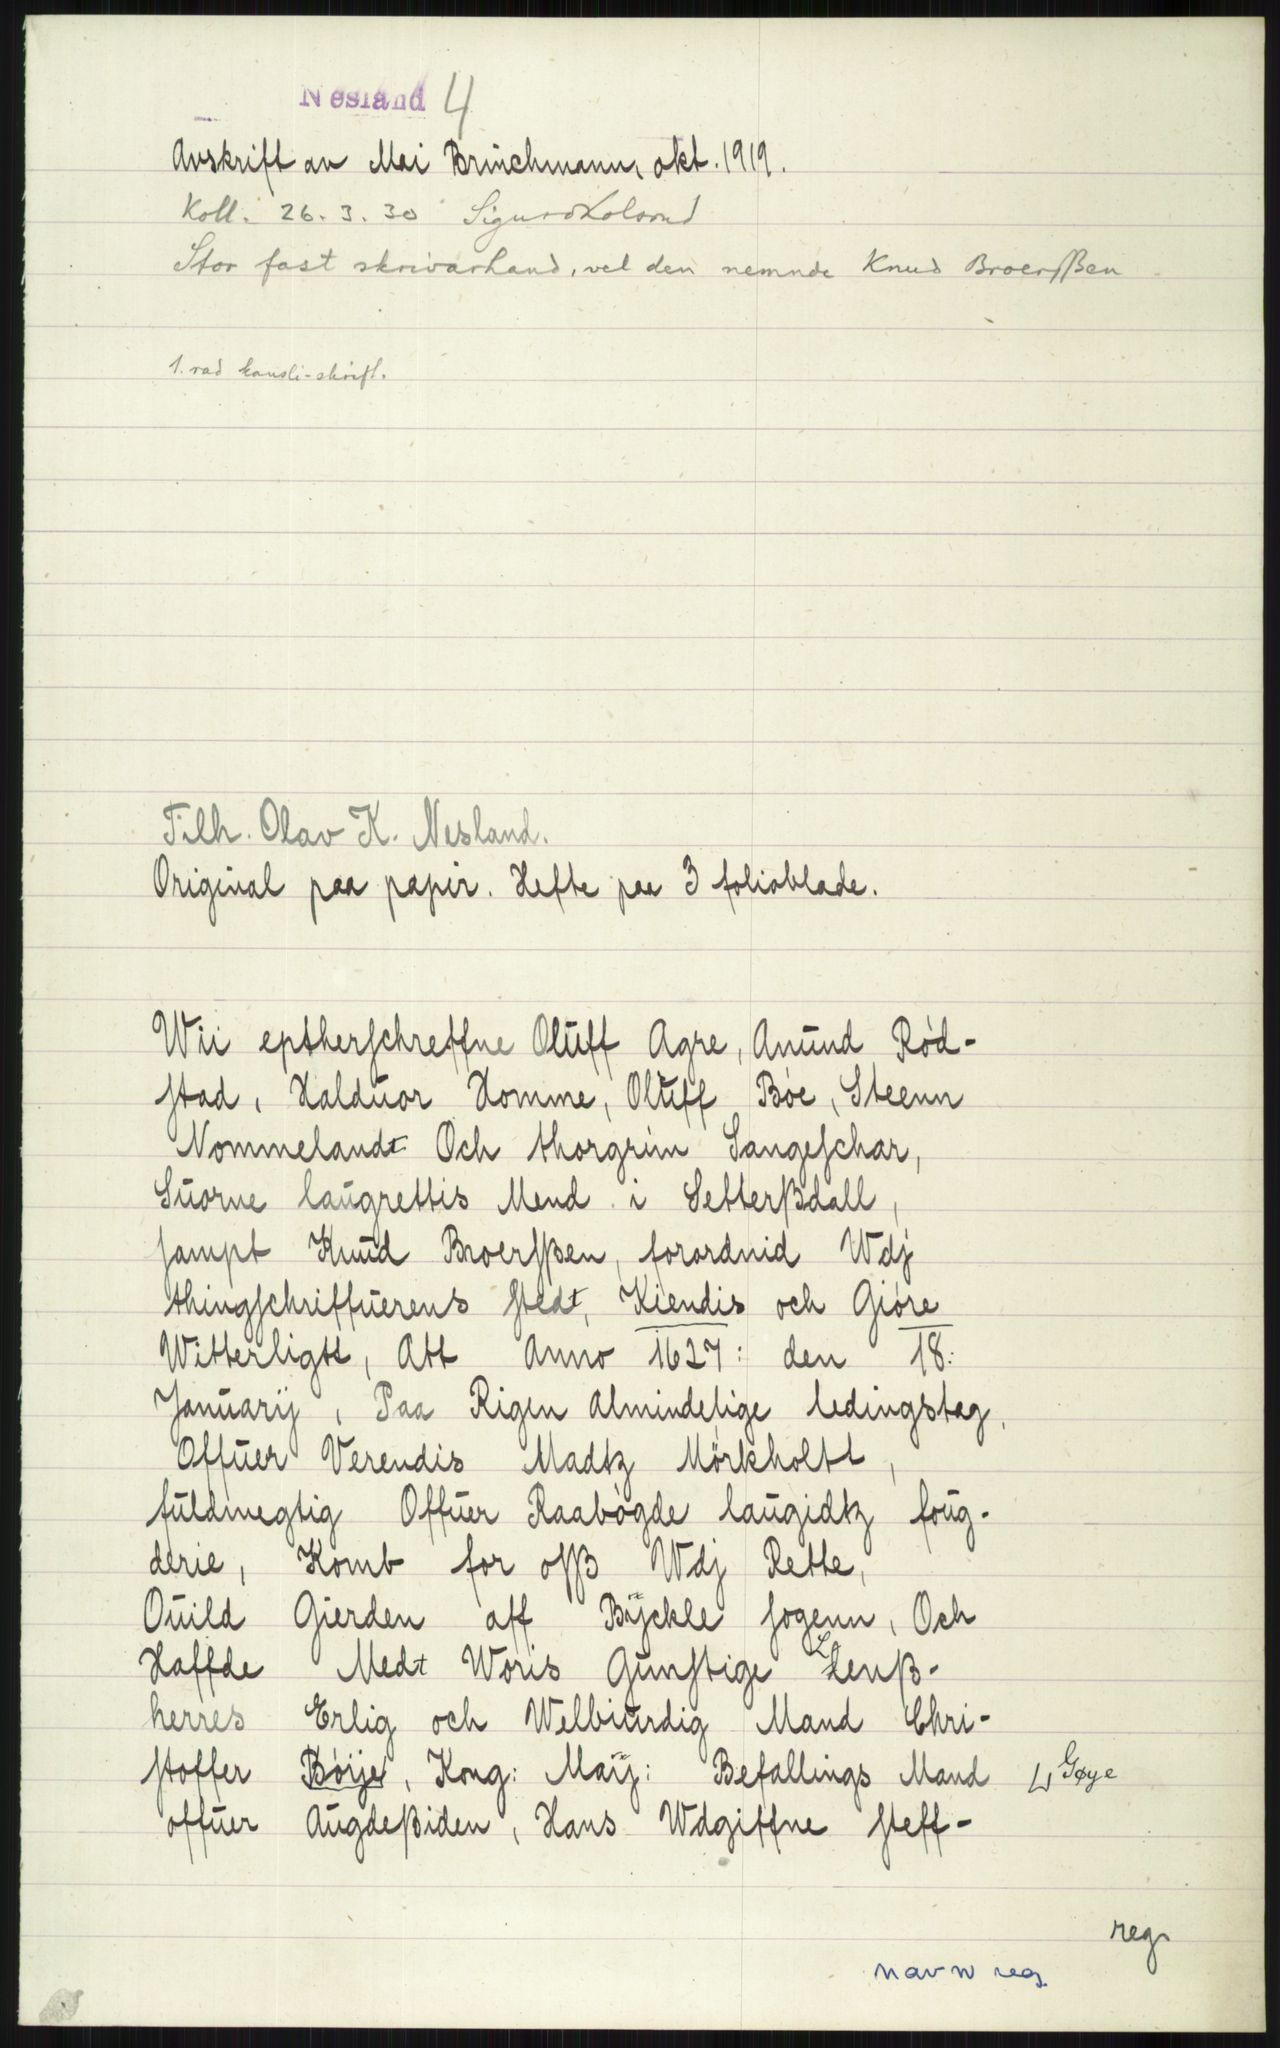 Nesland 4
Avskrift av Mai Brinchmann, okt. 1919.
Koll. 26.3.30 Sigurd Kolsrud
Stor fast skrivarhand, vel den nemnde Knud Broerßen
1. rad kansli-skrift.
Tilh. Olav K. Nesland.
Original paa papir. Hefte paa 3 folioblade.
Wii eptherschreffne Oluff Agre, Anund Rød-
stad, Halduor Homme, Oluff Bøe, Steenn
Nommelandt Och thorgrim Langeschar,
Suorne laugrettis Mend i Setterßdall,
sampt Knud Broersßen, forordnid Wdj
thingschriffuerens stedt, Kiendis och Giøre
Witterligtt, Att Anno 1627: den 18:
Januarij, Paa Rigen Almindelige ledingstag,
Offuer Verendis Madtz Mörkholtt,
fuldmegtig Offuer Raabögde laugidtz foug-
derie, Komb for osß Wdj Rette,
Ouild Gierden aff Bÿckle sogenn, Och
Haffde Medt Woris Gunstige Lenß-
herres Erlig och Welbiurdig Mand Chri-
stoffer Börje, Kong: Maÿ: Befallings Mand ⊔ Gøye
offuer Augdeßiden, Hans Wdgiffne steff-
reg.
navn reg.